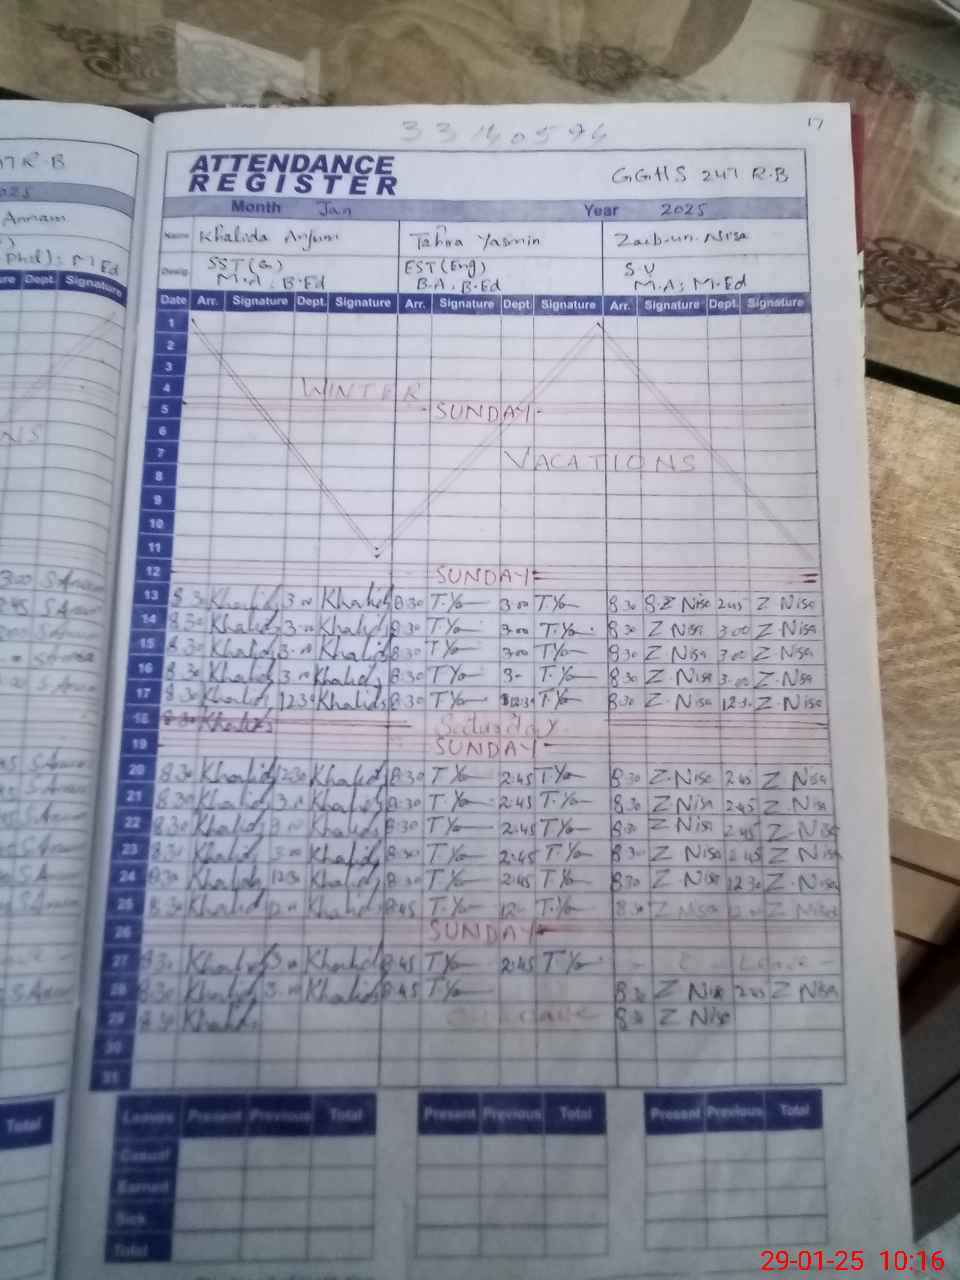 17
33140596
ATTENDANCE
REGISTER
GGHS 247 R.B
Month Jan Year 2025
Name Khalida Anjum Tahira Yasmin Zaib-un-Nisa
Desig. SST(G) EST(Eng) S.V
M.A, B.Ed B.A, B.Ed M.A; M.Ed
Date Arr. Signature Dept. Signature Arr. Signature Dept Signature Arr. Signature Dept. Signature
1
2
3
4 WINTER
5 SUNDAY
6
7 VACATIONS
8
9
10
11
12 SUNDAY
13 8.30 Khalida 3.00 Khalida 8:30 T.Ya 3.00 T.Ya 8.30 Z Nisa 2.45 Z Nisa
14 8.30 Khalida 3.00 Khalida 8.30 T.Ya 3.00 T.Ya 8.30 Z Nisa 3.00 Z Nisa
15 8.30 Khalida 3.00 Khalida 8.30 T.Ya 3.00 T.Ya 8.30 Z.Nisa 3.00 Z.Nisa
16 8.30 Khalida 3.00 Khalida 8.30 T Ya 3- T.Ya 8.30 Z.Nisa 3.00 Z.Nisa
17 8.30 Khalida 12.30 Khalida 8.30 T Ya 12.30 T.Ya 8.30 Z.Nisa 12.30 Z.Nisa
18 8.30 Khalida Saturday
19 SUNDAY
20 8.30 Khalida 2.30 Khalida 8.30 T Ya 2.45 T Ya 8.30 Z.Nisa 2.45 Z Nisa
21 8.30 Khalida 3.00 Khalida 8.30 T Ya 2.45 T.Ya 8.30 Z Nisa 2.45 Z Nisa
22 8.30 Khalida 3.00 Khalida 8.30 T Ya 2.45 T Ya 8.30 Z Nisa 2.45 Z Nisa
23 8.30 Khalida 3.00 Khalida 8.30 T Ya 2.45 T.Ya 8.30 Z Nisa 2.45 Z Nisa
24 8.30 Khalida 12.30 Khalida 8.30 T.Ya 2.45 T.Ya 8.30 Z.Nisa 12.30 Z.Nisa
25 8.30 Khalida 12.00 Khalida 8.45 T.Ya 12- T.Ya 8.30 Z Nisa 12.00 Z Nisa
26 SUNDAY
27 8.30 Khalida 3.00 Khalida 8.45 T Ya 2.45 T Ya Leave
28 8.30 Khalida 3.00 Khalida 8.45 T Ya 8.30 Z Nisa 2.45 Z Nisa
29 8.30 Khalida 8.30 Z Nisa
30
31
Leaves Present Previous Total Present Previous Total Present Previous Total
Casual
Earned
Sick
Total
29-01-25 10:16